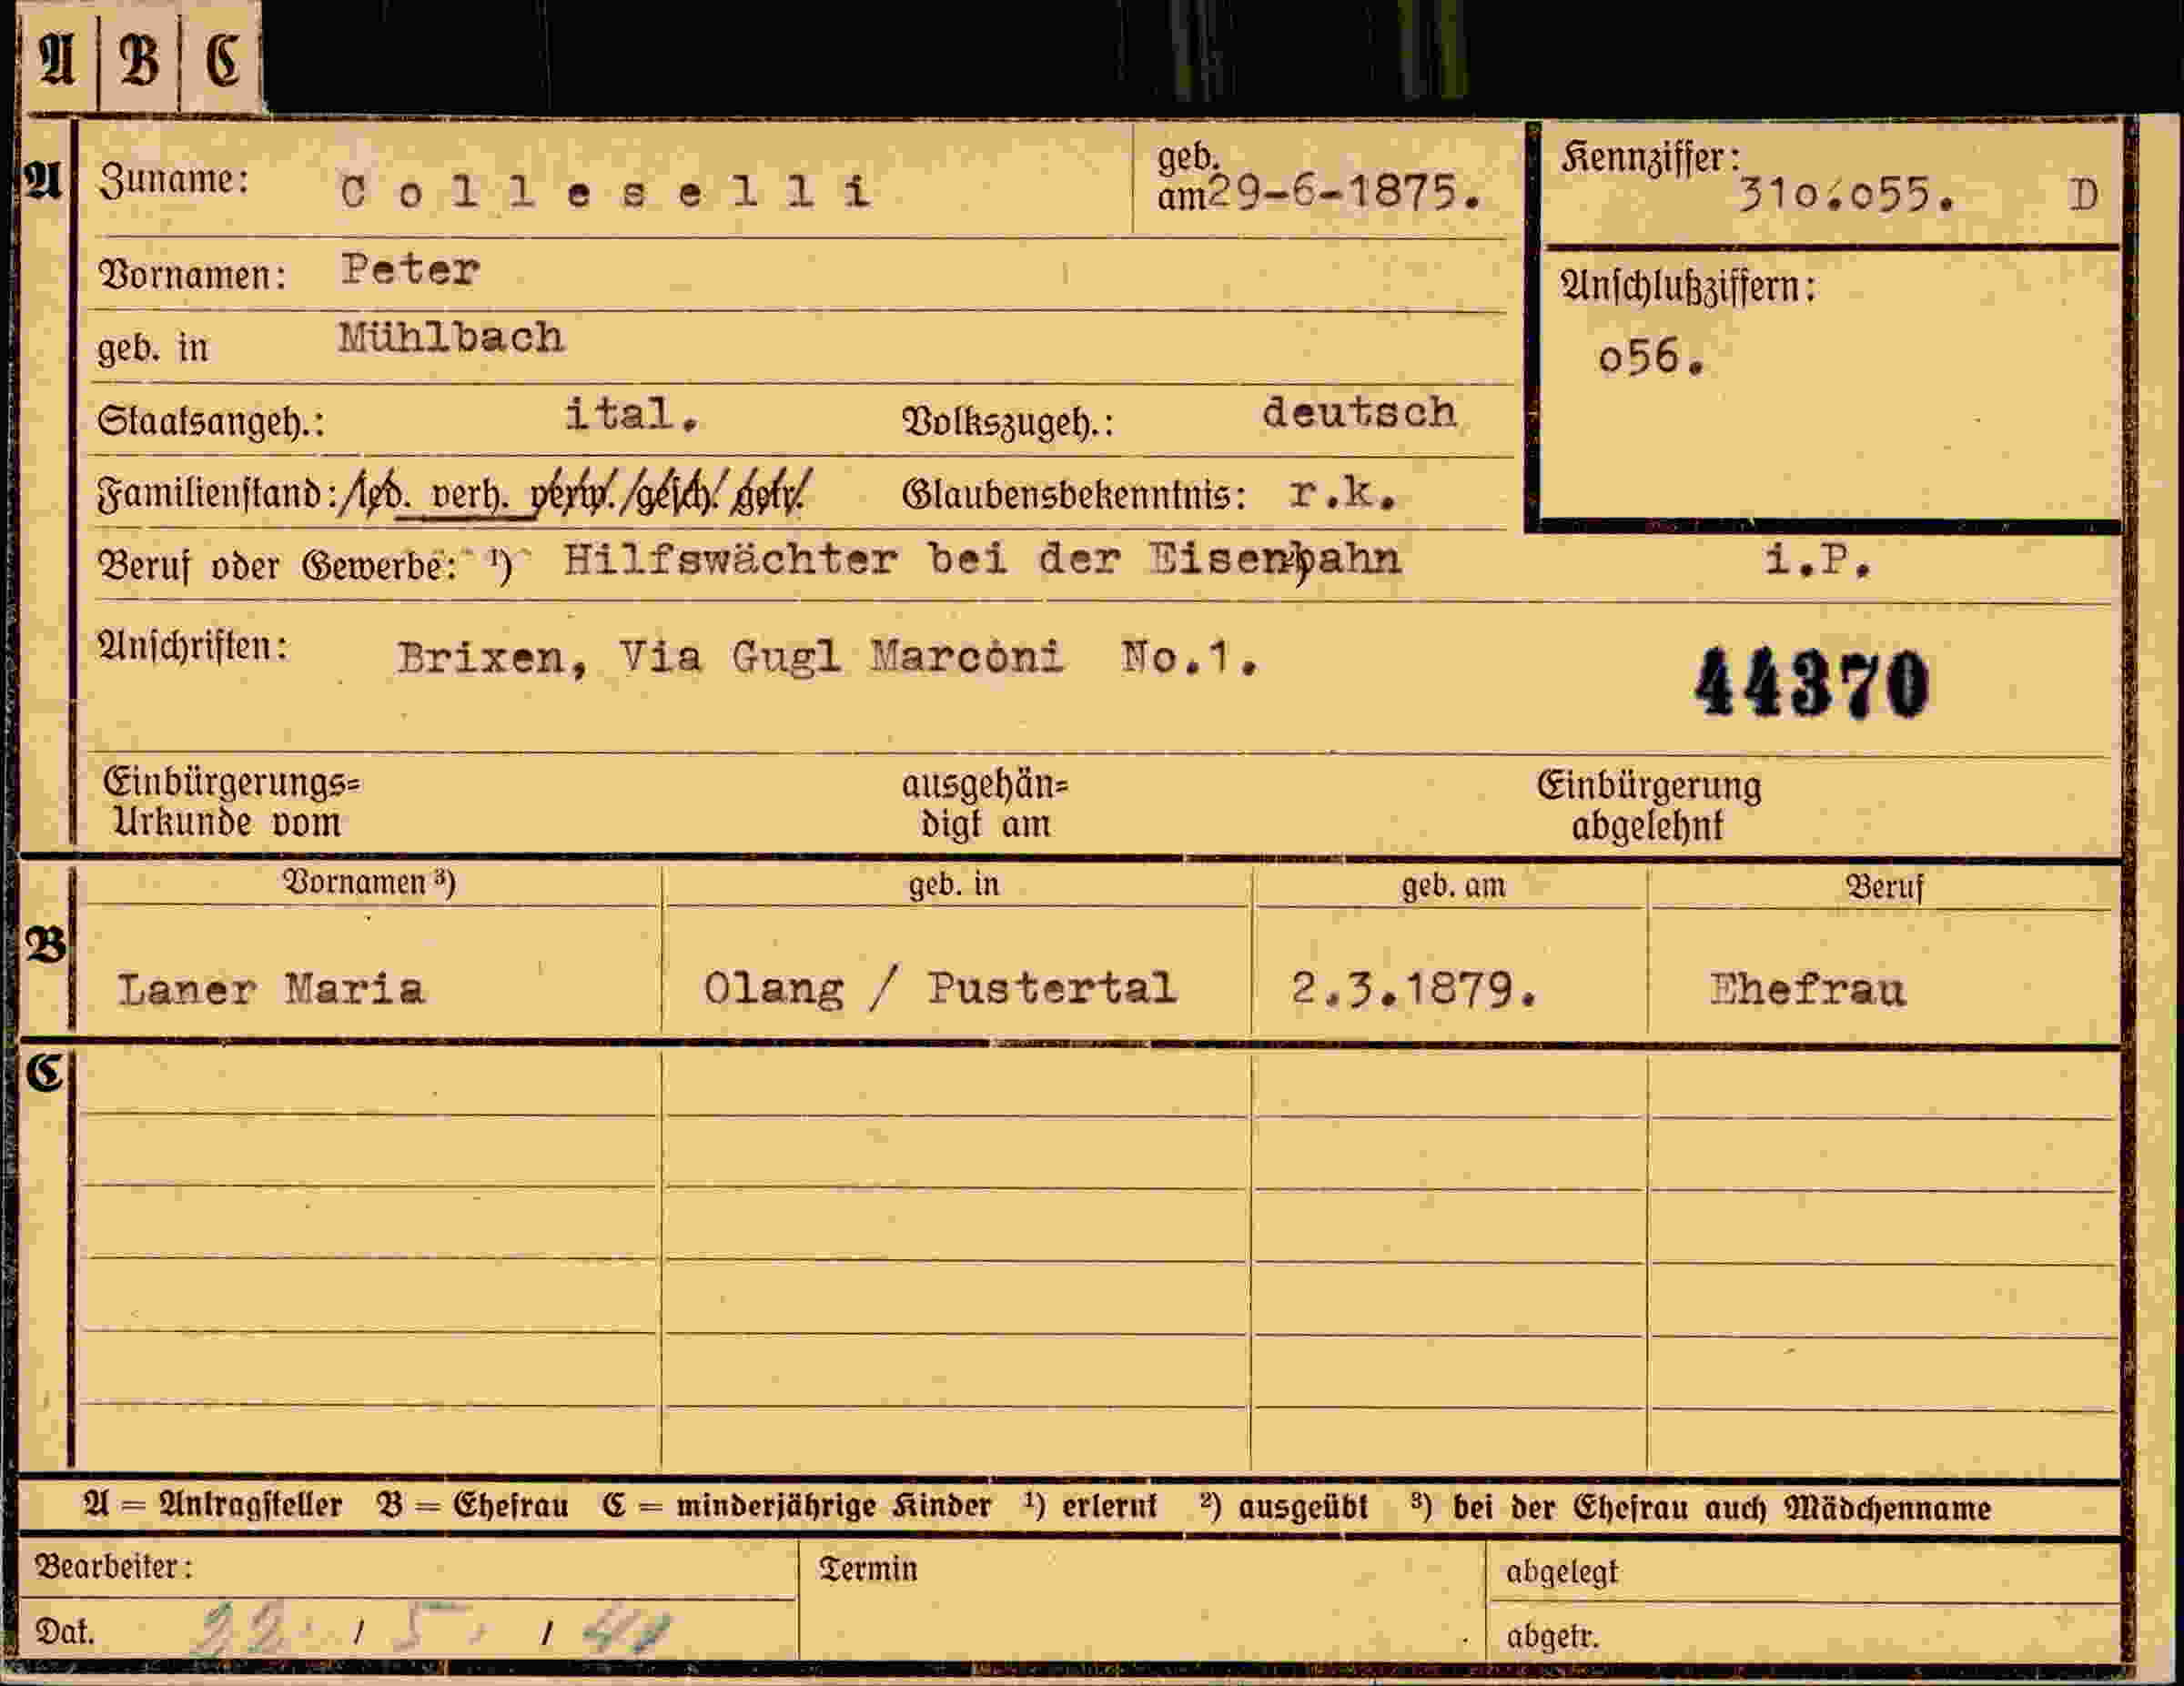 A B C
A Zuname: Colleselli geb. am 29-6-1875. Kennziffer: 310.055. D
Vornamen: Peter
Anschlußziffern:
geb. in Mühlbach
056.
Staatsangeh.: ital. Volkszugeh.: deutsch
Familienstand: led. verh. verw. gesch. getr. Glaubensbekenntnis: r.k.
Beruf oder Gewerbe: ¹) Hilfswächter bei der Eisenbahn i.P.
Anschriften: Brixen, Via Gugl Marconi No.1.
44370
Einbürgerungs= ausgehän= Einbürgerung
Urkunde vom digt am abgelehnt
Vornamen ³) geb. in geb. am Beruf
B
Laner Maria Olang / Pustertal 2.3.1879. Ehefrau
C
A = Antragsteller B = Ehefrau C = minderjährige Kinder ¹) erlernt ²) ausgeübt ³) bei der Ehefrau auch Mädchenname
Bearbeiter: Termin abgelegt
Dat. 22. / 5. / abgetr.